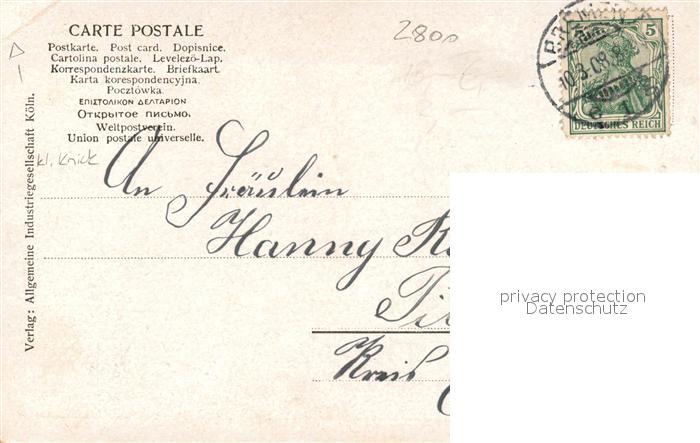 CARTE POSTALE
Postkarte. Post card. Dopisnice.
Cartolina postale. Levelező-Lap.
Korrespondenzkarte. Briefkaart.
Karta korespondencyjna.
Pocztówka.
ΕΠΙΣΤΟΛΙΚΟΝ ΔΕΛΤΑΡΙΟΝ
Открытое письмо.
Weltpostverein.
Union postale universelle.
2800
5
DEUTSCHES REICH
BREMEN
kl. Knick
Verlag: Allgemeine Industriegesellschaft Köln.
An Fräulein
Hanny
Kreis
privacy protection
Datenschutz